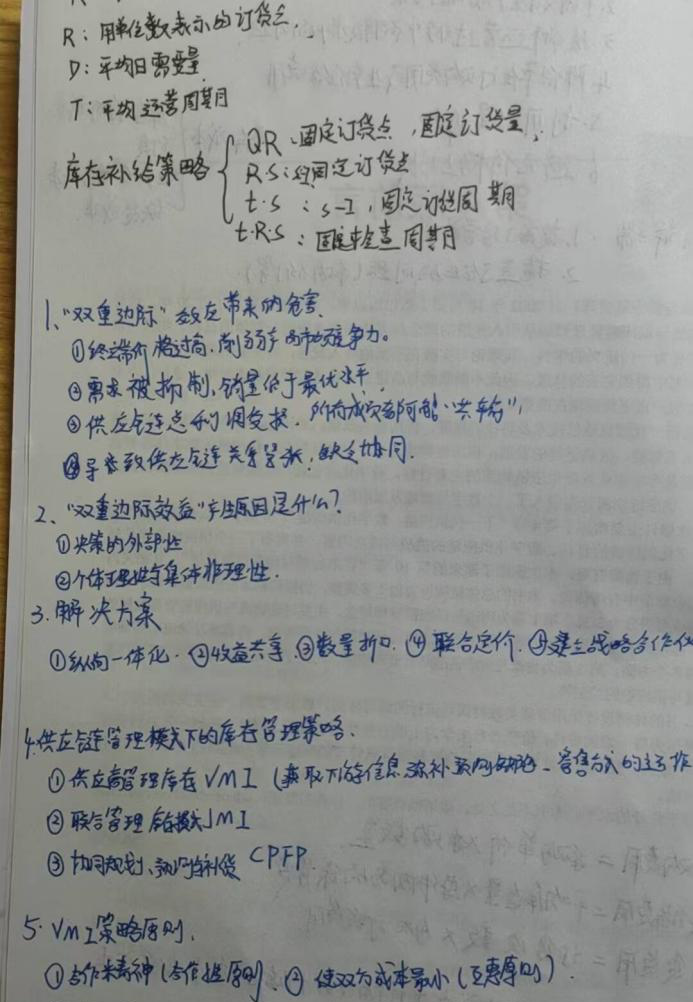 R：用单位数表示的订货点.
D：平均日需要量
T：平均运营周期月
库存补给策略
QR、固定订货点，固定订货量；
R·S：固定订货点
t·S：S-I，固定订货周期
t·R·S：固定检查周期
1、"双重边际"效应带来的危害、
①终端价格过高，削弱市场竞争力。
②需求被抑制、销量低于最优水平
③供应链总利润受损，所有成员都可能"共输"；
④导致供应链关系紧张，缺乏协同.
2、"双重边际效益"产生原因是什么？
①决策的外部性
②个体理性与集体非理性.
3.解决方案
①纵向一体化.②收益共享③数量折扣.④联合定价.⑤建立战略合作伙
4.供应链管理模式下的库存管理策略.
①供应商管理库存VMI（获取下游信息
②联合管理库存模式JMI
③协同规划、预测与补货 CPFP
5. VMI策略原则.
①合作精神（合作性原则）.②使双方成本最小（互惠原则）.